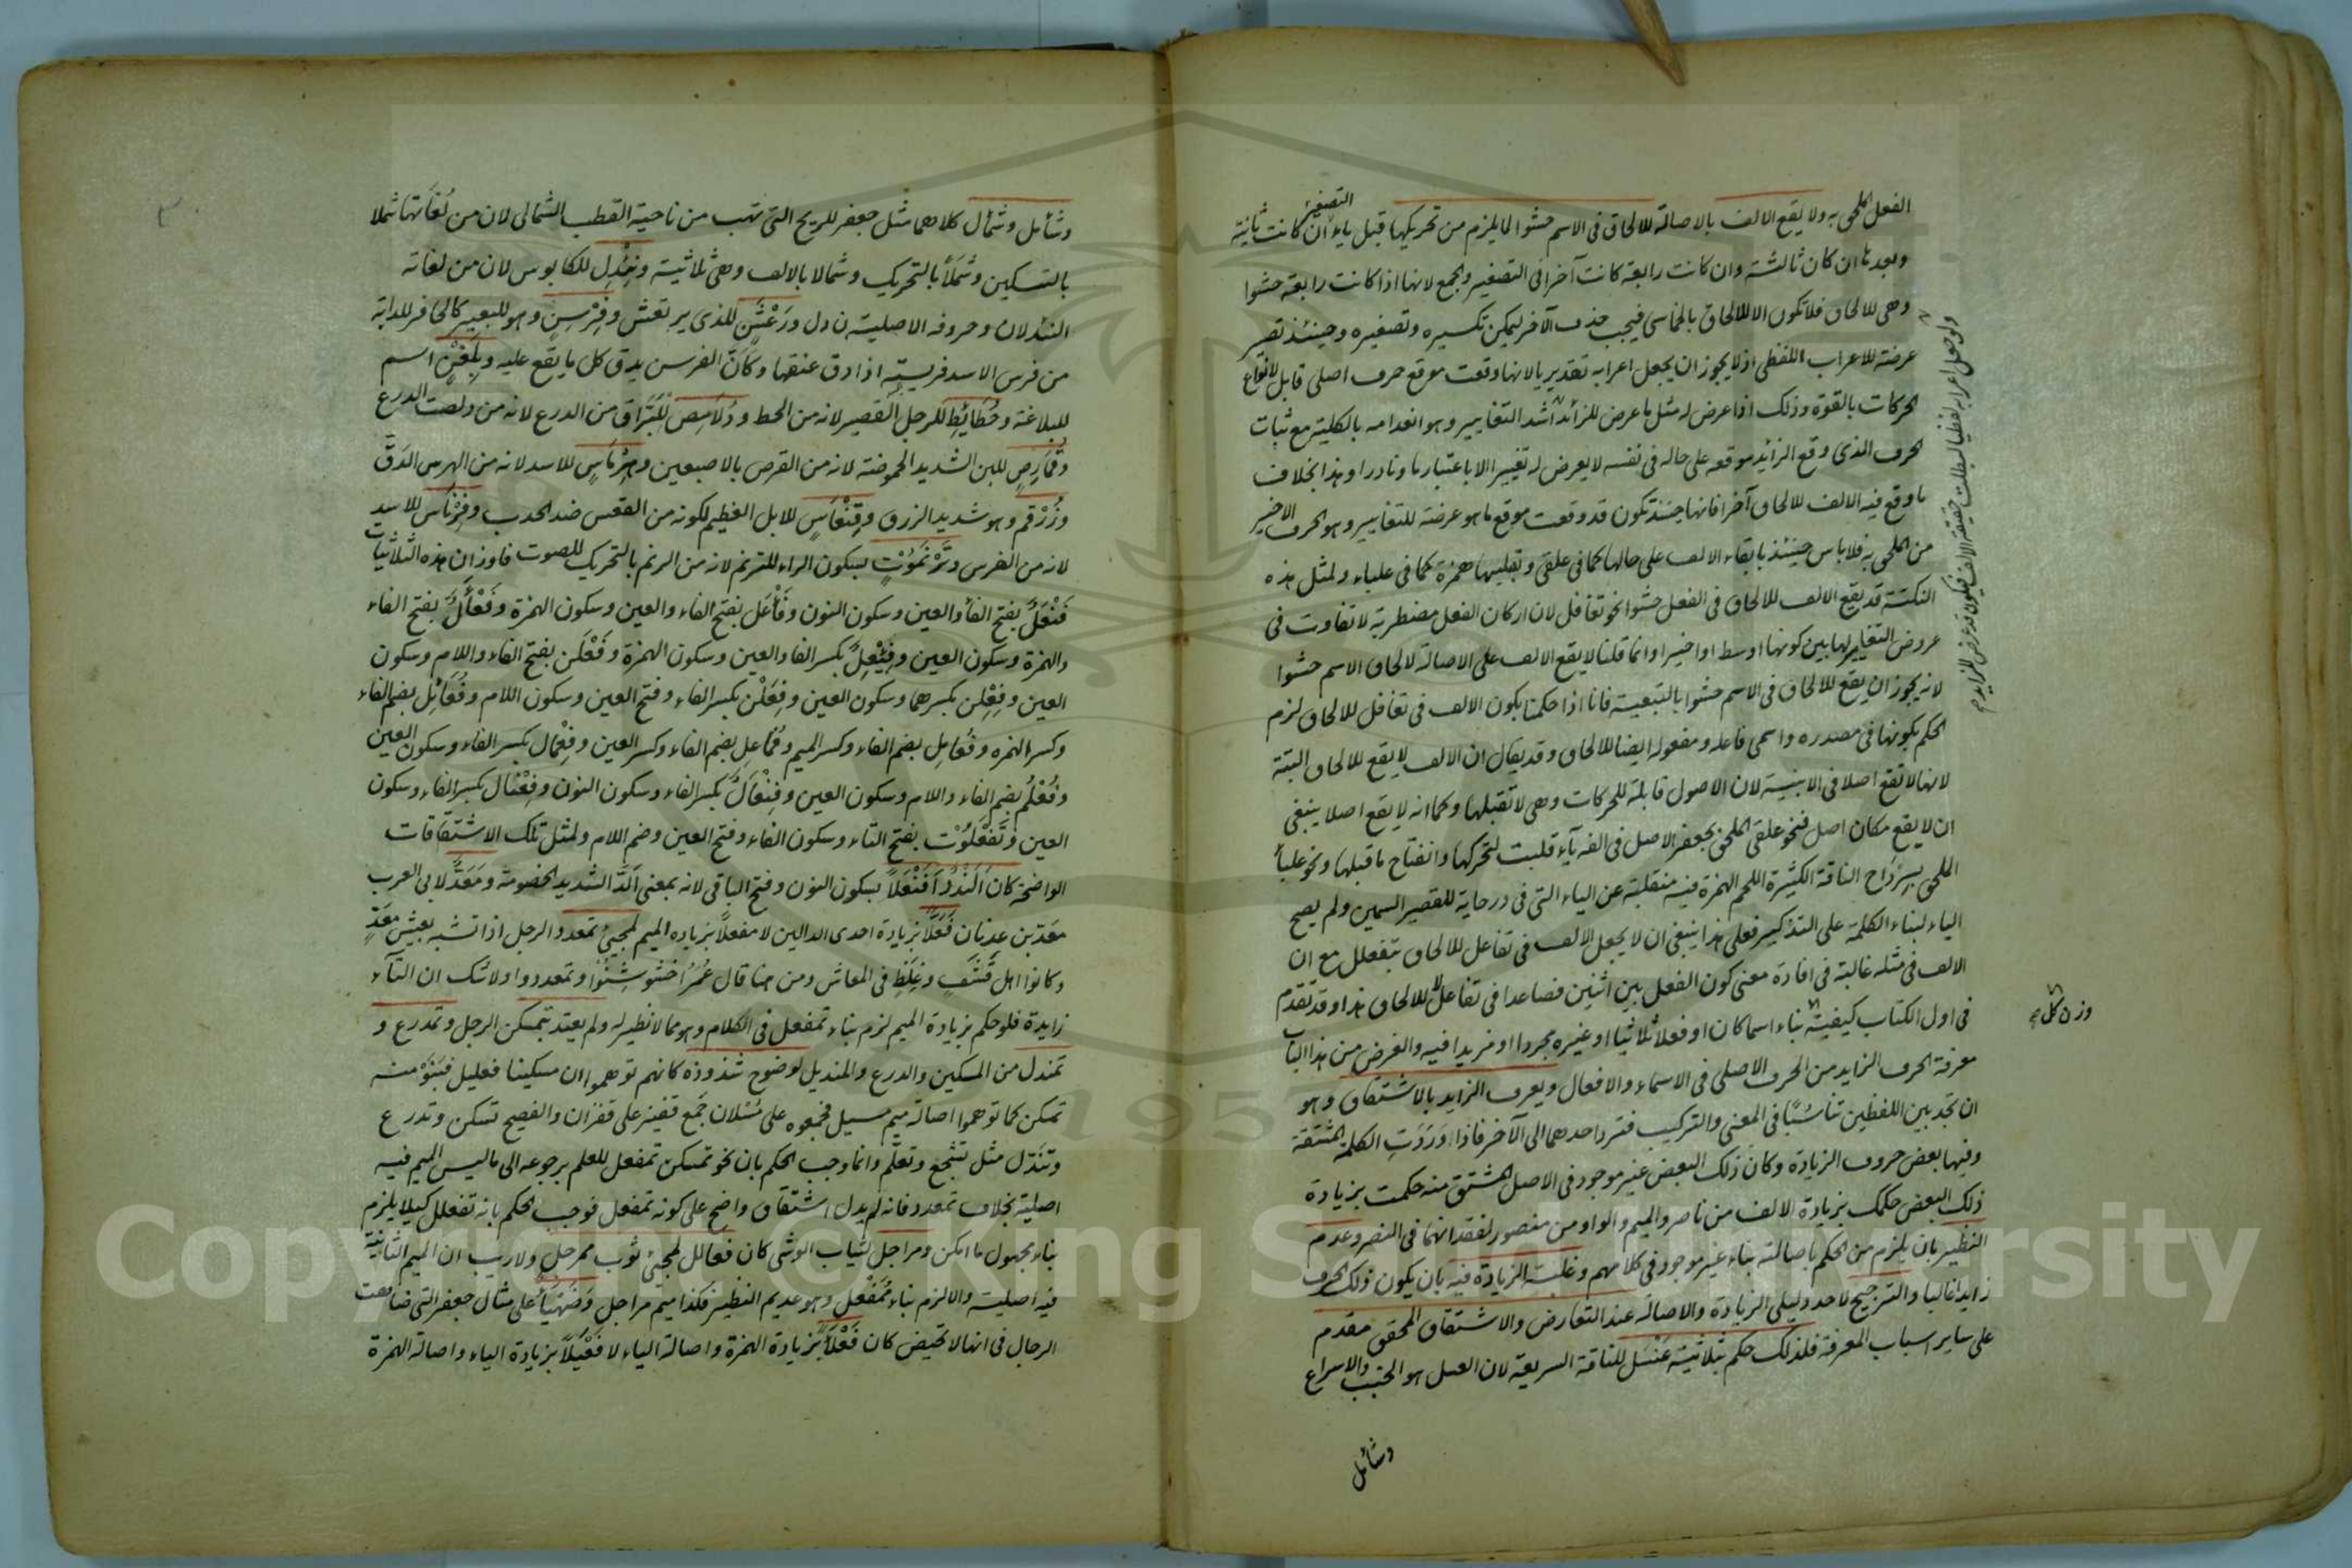 الفعل الملحق به ولا يقع الالف بالاصالة للالحاق فى الاسم حشوا لما يلزم من تحريكها قبل ياء التصغير ان كانت ثانية
وبعدها ان كان ثالثة وان كانت رابعة كانت آخرا فى التصغير والجمع لانها اذا كانت رابعة حشوا
وهى للالحاق فلا تكون الا للالحاق بالخماسى فيجب حذف الآخر ليمكن تكسيره وتصغيره وحينئذ تصير
عرضة للاعراب اللفظى اذ لا يجوز ان يجعل اعرابه تقديريا لانها وقعت موقع حرف اصلى قابل لانواع
الحركات بالقوة وذلك اذا عرض له مثل ما عرض للزائد اشد التغايير وهو انعدامه بالكلية مع ثبات
الحرف الذى وقع الزائد موقعه على حاله فى نفسه لا يعرض له تغيير الا باعتبار ما ونادرا وهذا بخلاف
ما وقع فيه الالف للالحاق آخرا فانها حينئذ تكون قد وقعت موقع ما هو عرضة للتغايير وهو الحرف الاخير
من الملحق به فلا باس حينئذ بابقاء الالف على حالها كما فى علقى وتقليبها همزة كما فى علباء ولمثل هذه
النكتة قد يقع الالف للالحاق فى الفعل حشوا نحو تغافل لان اركان الفعل مضطربة لا تفاوت فى
عروض التغايير لها بين كونها اوسط او اخيرا وانما قلنا لا يقع الالف على الاصالة لالحاق الاسم حشوا
لانه يجوز ان يقع للالحاق فى الاسم حشوا بالتبعية فانا اذا حكمنا بكون الالف فى تغافل للالحاق لزم
الحكم بكونها فى مصدره واسمى فاعله ومفعوله ايضا للالحاق وقد يقال ان الالف لا يقع للالحاق البتة
لانها لا تقع اصلا فى الابنية لان الاصول قابلة للحركات وهى لا تقبلها وكما انه لا يقع اصلا ينبغى
ان لا يقع مكان اصل فنحو علقى الملحق بجعفر الاصل فى الفه ياء قلبت لتحركها وانفتاح ما قبلها ونحو علباء
الملحق بسرداح الناقة الكثيرة اللحم الهمزة فيه منقلبة عن الياء التى فى درحاية للقصير السمين ولم يصح
الياء لبناء الكلمة على التذكير فعلى هذا ينبغى ان لا يجعل الالف فى تفاعل للالحاق بتفعلل مع ان
الالف فى مثله غالبة فى افادة معنى كون الفعل بين اثنين فصاعدا فى تفاعل لا للالحاق هذا وقد تقدم
فى اول الكتاب كيفية بناء اسما كان او فعلا ثلاثيا او غيره مجردا او مزيدا فيه والغرض من هذا الباب
معرفة الحرف الزايد من الحرف الاصلى فى الاسماء والافعال ويعرف الزايد بالاشتقاق وهو
ان تجد بين اللفظين تناسبا فى المعنى والتركيب فترد احدهما الى الآخر فاذا وردت الكلمة المشتقة
وفيها بعض حروف الزيادة وكان ذلك البعض غير موجود فى الاصل المشتق منه حكمت بزيادة
ذلك البعض حكمك بزيادة الالف من ناصر والميم والواو من منصور لفقدانهما فى النصر وعدم
النظير بان يلزم من الحكم باصالته بناء غير موجود فى كلامهم وغلبة الزيادة فيه بان يكون ذلك الحرف
زايدا غالبا والترجيح لاحد دليلى الزيادة والاصالة عند التعارض والاشتقاق المحقق مقدم
على ساير اسباب المعرفة فلذلك حكم بثلاثية عنسل للناقة السريعة لان العسل هو الخبب والاسراع
وشأمل
ولو جعل اعرابه لفظيا لبطلت حقيقة الالف فيكون قد عرض للزايد
وزن كل
وشأمل وشمأل كلاهما مثل جعفر للريح التى تهب من ناحية القطب الشمالى لان من لغاتها شملا
بالتسكين وشملا بالتحريك وشمالا بالالف وهى ثلاثية ونئدل للكابوس لان من لغاته
النئدلان وحروفه الاصلية ن د ل ورعشن للذى يرتعش وفرسن وهو للبعير كالحافر للدابة
من فرس الاسد فريسته اذا دق عنقها وكان الفرسن يدق كل ما يقع عليه وبلغن اسم
للبلاغة وحطائط للرجل القصير لانه من الحط ودلامص للبراق من الدرع لانه من دلصت الدرع
وقمارص للبن الشديد الحموضة لانه من القرص بالاصبعين وهرماس للاسد لانه من الهرس الدق
وزرقم وهو شديد الزرق وقنعاس للابل العظيم لكونه من القعس ضد الحدب وفرناس للاسد
لانه من الفرس وترنموت بسكون الراء للترنم لانه من الرنم بالتحريك للصوت فاوزان هذه الثلاثيات
فنعل بفتح الفاء والعين وسكون النون وفأعل بفتح الفاء والعين وسكون الهمزة وفعأل بفتح الفاء
والهمزة وسكون العين وفئعل بكسر الفاء والعين وسكون الهمزة وفعلن بفتح الفاء واللام وسكون
العين وفعلن بكسرهما وسكون العين وفعلن بكسر الفاء وفتح العين وسكون اللام وفعائل بضم الفاء
وكسر الهمزة وفعامل بضم الفاء وكسر الميم وفماعل بضم الفاء وكسر العين وفعمال بكسر الفاء وسكون العين
وفعلم بضم الفاء واللام وسكون العين وفنعال بكسر الفاء وسكون النون وفعنال بكسر الفاء وسكون
العين وتفعلوت بفتح التاء وسكون الفاء وفتح العين وضم اللام ولمثل تلك الاشتقاقات
الواضحة كان النددا فنعلا بسكون النون وفتح الباقى لانه بمعنى الد الشديد الخصومة ومعد لابى العرب
معد بن عدنان فعلا بزيادة احدى الدالين لا مفعلا بزيادة الميم لمجئ تمعدد الرجل اذا تشبه بعيش معد
وكانوا اهل قشف وغلظ فى المعاش ومن هنا قال عمر اخشوشنوا وتمعددوا ولا شك ان التاء
زايدة فلو حكم بزيادة الميم لزم بناء تمفعل فى الكلام وهو مما لا نظير له ولم يعتد بتمسكن الرجل وتمدرع و
تمندل من المسكين والدرع والمنديل لوضوح شذوذه كانهم توهموا ان مسكينا فعليل فبنو منه
تمسكن كما توهموا اصالة ميم مسيل فجمعوه على مسلان جمع قفيز على قفزان والفصيح تسكن وتدرع
وتندل مثل تشجع وتعلم وانما وجب الحكم بان نحو تمسكن تمفعل للعلم برجوعه الى ما ليس الميم فيه
اصلية بخلاف تمعدد فانه لم يدل اشتقاق واضح على كونه تمفعل فوجب الحكم بانه تفعلل كيلا يلزم
بناء مجهول ما امكن ومراجل لثياب الوشى كان فعالل لمجئ ثوب ممرجل ولا ريب ان الميم الثانية
فيه اصلية والا لزم بناء ممفعل وهو عديم النظير فكذا ميم مراجل وضهيأ على مثال جعفر التى ضاهت
الرجال فى انها لا تحيض كان فعلأ بزيادة الهمزة واصالة الياء لا فعيلا بزيادة الياء واصالة الهمزة